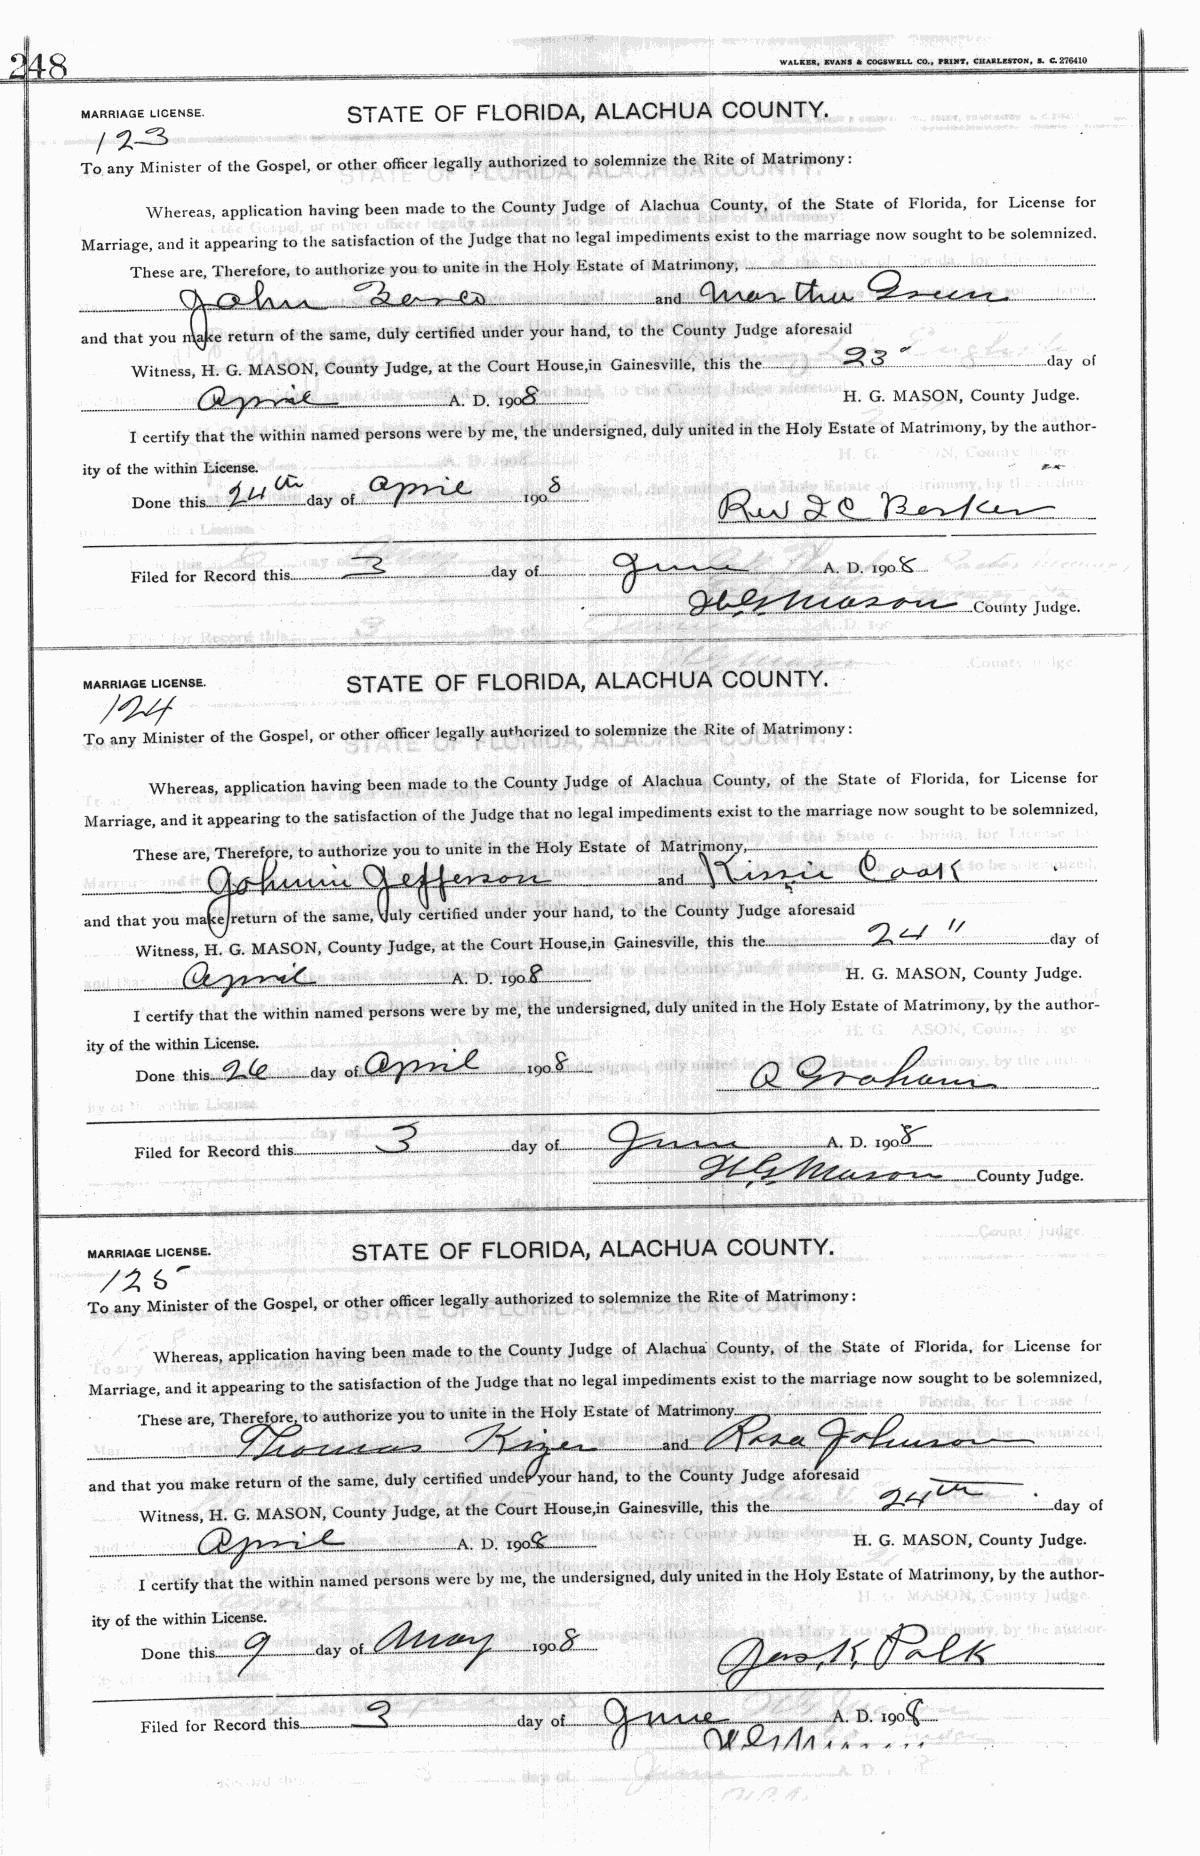 248
WALKER, EVANS & COGSWELL CO., PRINT, CHARLESTON, S. C. 276410
MARRIAGE LICENSE. STATE OF FLORIDA, ALACHUA COUNTY.
123
To any Minister of the Gospel, or other officer legally authorized to solemnize the Rite of Matrimony:
Whereas, application having been made to the County Judge of Alachua County, of the State of Florida, for License for
Marriage, and it appearing to the satisfaction of the Judge that no legal impediments exist to the marriage now sought to be solemnized.
These are, Therefore, to authorize you to unite in the Holy Estate of Matrimony,
John and Martha Green
and that you make return of the same, duly certified under your hand, to the County Judge aforesaid
Witness, H. G. MASON, County Judge, at the Court House, in Gainesville, this the 23" day of
April A. D. 1908 H. G. MASON, County Judge.
I certify that the within named persons were by me, the undersigned, duly united in the Holy Estate of Matrimony, by the author-
ity of the within License.
Done this 24th day of April 1908
Rev I C Berker
Filed for Record this 3 day of June A. D. 1908
H G Mason County Judge.
MARRIAGE LICENSE. STATE OF FLORIDA, ALACHUA COUNTY.
124
To any Minister of the Gospel, or other officer legally authorized to solemnize the Rite of Matrimony:
Whereas, application having been made to the County Judge of Alachua County, of the State of Florida, for License for
Marriage, and it appearing to the satisfaction of the Judge that no legal impediments exist to the marriage now sought to be solemnized,
These are, Therefore, to authorize you to unite in the Holy Estate of Matrimony,
Johnnie Jefferson and Kissie Cook
and that you make return of the same, duly certified under your hand, to the County Judge aforesaid
Witness, H. G. MASON, County Judge, at the Court House, in Gainesville, this the 24" day of
April A. D. 1908 H. G. MASON, County Judge.
I certify that the within named persons were by me, the undersigned, duly united in the Holy Estate of Matrimony, by the author-
ity of the within License.
Done this 26 day of April 1908
A Graham
Filed for Record this 3 day of June A. D. 1908
H G Mason County Judge.
MARRIAGE LICENSE. STATE OF FLORIDA, ALACHUA COUNTY.
125
To any Minister of the Gospel, or other officer legally authorized to solemnize the Rite of Matrimony:
Whereas, application having been made to the County Judge of Alachua County, of the State of Florida, for License for
Marriage, and it appearing to the satisfaction of the Judge that no legal impediments exist to the marriage now sought to be solemnized,
These are, Therefore, to authorize you to unite in the Holy Estate of Matrimony
Thomas Kizer and Rosa Johnson
and that you make return of the same, duly certified under your hand, to the County Judge aforesaid
Witness, H. G. MASON, County Judge, at the Court House, in Gainesville, this the 24th day of
April A. D. 1908 H. G. MASON, County Judge.
I certify that the within named persons were by me, the undersigned, duly united in the Holy Estate of Matrimony, by the author-
ity of the within License.
Done this 9 day of May 1908
Jas. K. Polk
Filed for Record this 3 day of June A. D. 1908